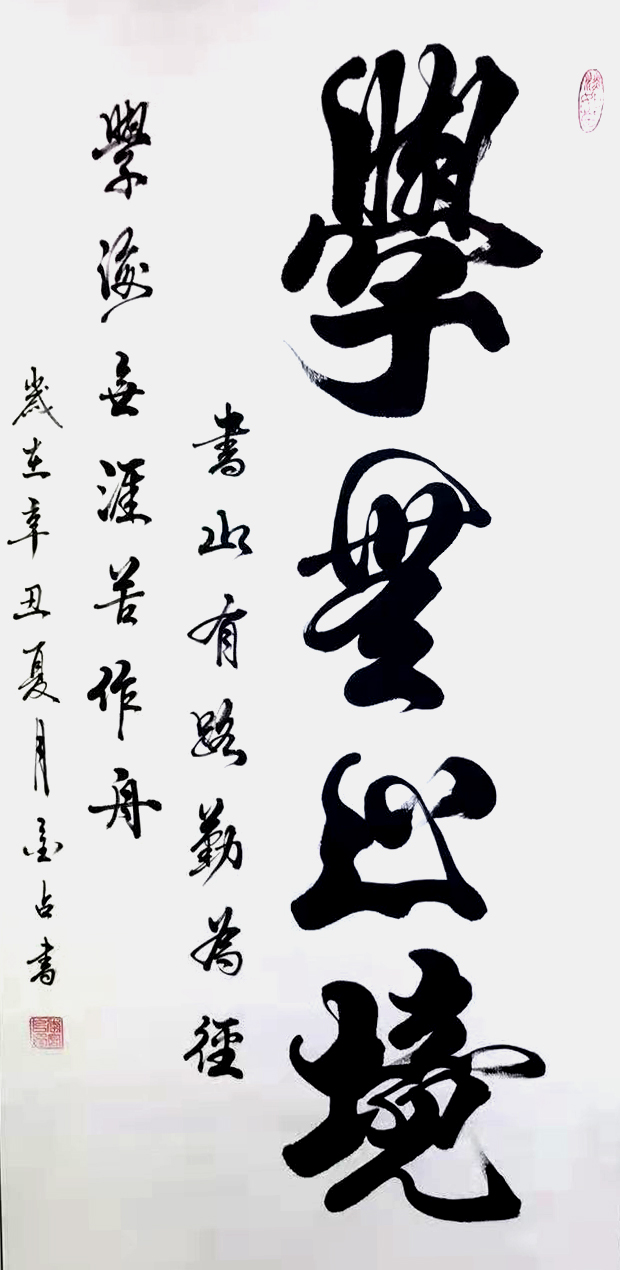 學無止境
書山有路勤為徑
學海無涯苦作舟
歲在辛丑夏月金占書